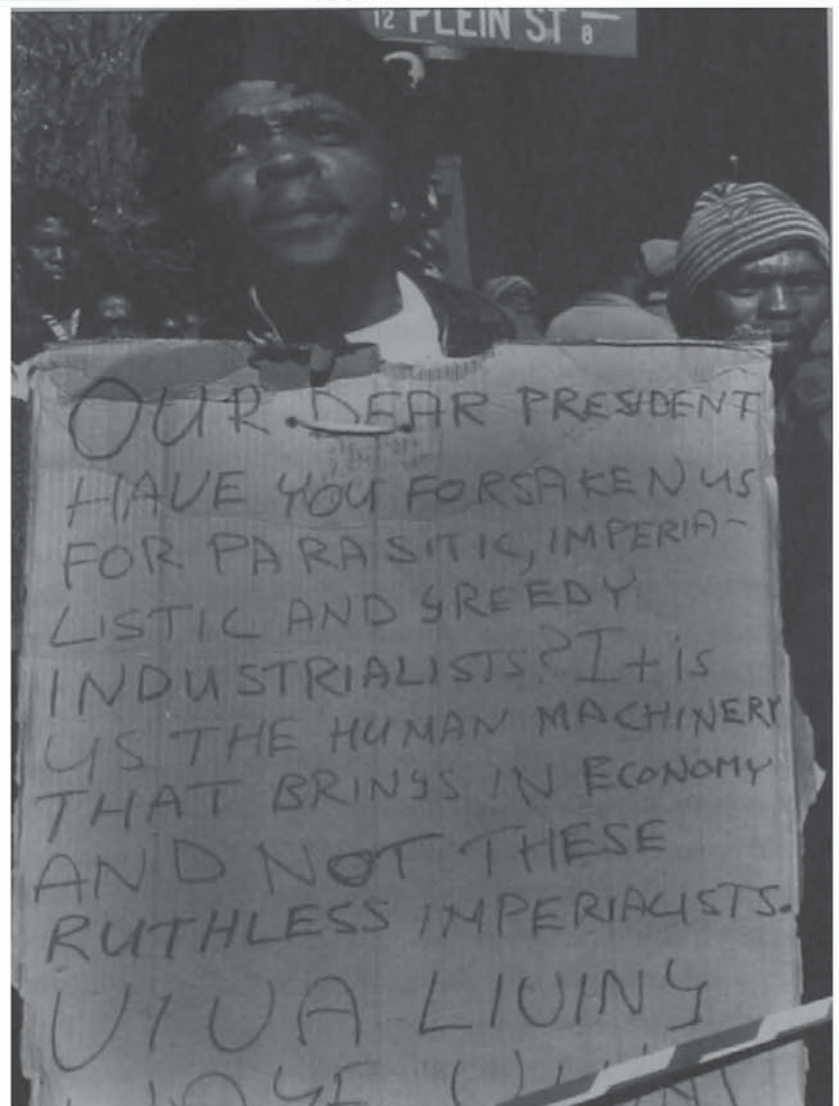 12 PLEIN ST 8
OUR DEAR PRESIDENT
HAVE YOU FORSAKEN US
FOR PARASITIC, IMPERIA-
LISTIC AND GREEDY
INDUSTRIALISTS? It is
US THE HUMAN MACHINERY
THAT BRINGS IN ECONOMY
AND NOT THESE
RUTHLESS IMPERIALISTS.
VIVA LIVING